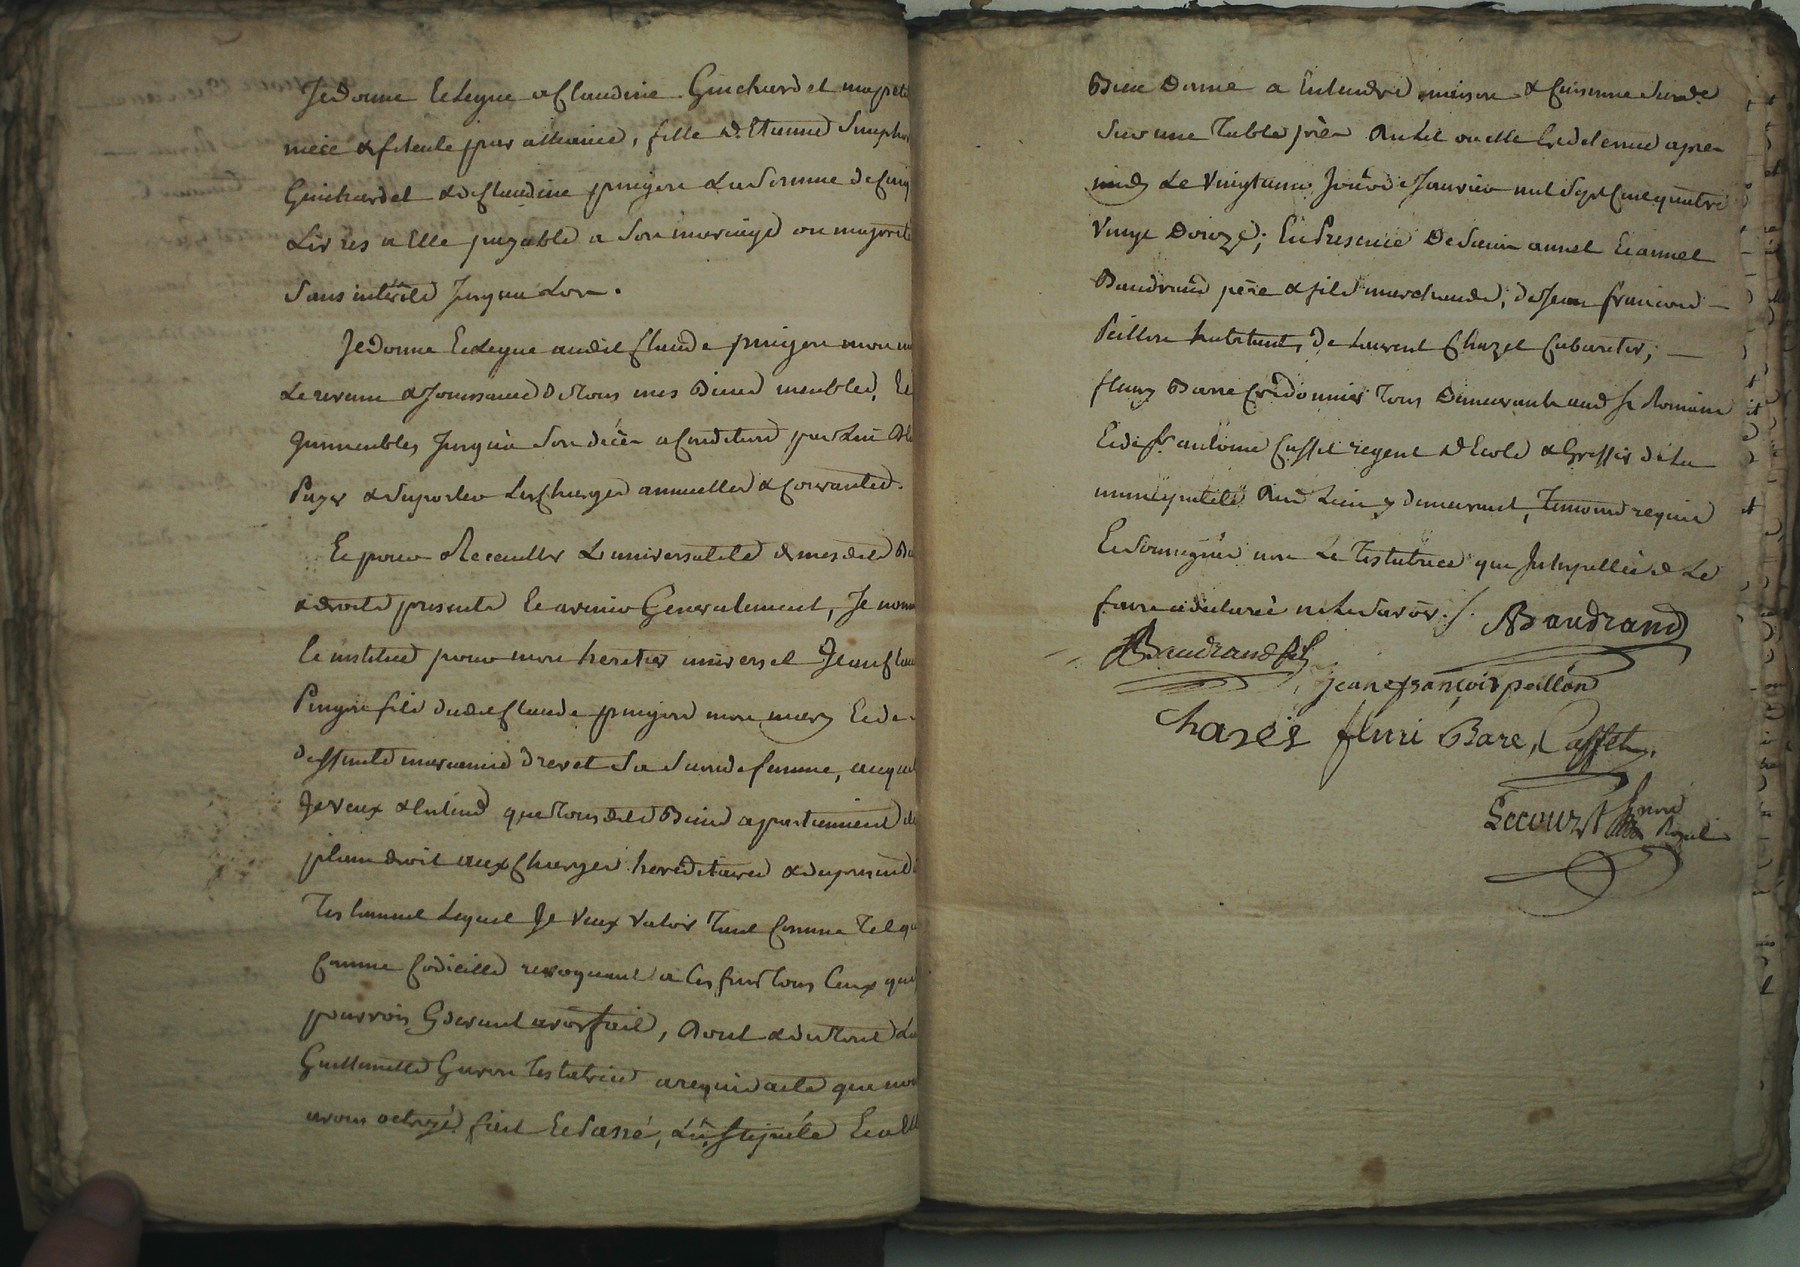 Je Donne Et Legue a Claudine Guichardet ma petite
niéce & fileule par alliance, fille d'Etienne Simphor
Guichardet & de Claudine pingeon La Somme de Cinq
Livres a Elle payable a Son mariage ou majorité
Sans intérêts Jusqua Lors.
Je Donne Et Legue audit Claude pingeon mon
Le revenu & Jouissance De Tous mes Biens meubles, Et
Immeubles Jusqu'a Son décès a Condition par Lui De
Payer & Suporter Les Charges annuelles & Courantes.
Et pour Recueillir L'universalité de mesdits Bi
& droits presents Et avenir Generalement, Je nomm
Et institue pour mon heritier universel Jean Claud
Pingeon fils dudit Claude pingeon mon mary Et de
deffunte marianne drevet Sa Seconde femme, auquel
Je Veux & Entend que Tous dits Biens apartiennent de
plein droit aux Charges hereditaires & du present
Testament Lequel Je Veux Valoir Tant Comme Tel qu
Comme Codicille revoquant a Ces fins Tous Ceux que
pourrois Cydevant avoir fait, Dont & du Tout La
Guillemette Guron Testatrice a requis acte que nous
avons octroyé, fait Et Passé, Lû, Stipulé Et a Ell
Bien Donné a Entendre maison & Cuisinne Susd.e
Sur une Table près du Lit ou elle Est detenue apres
midy Le Vingtunie Jour de Janvier mil Sept Cent quatre
Vingt Douze; En Presence De Sieurs annet Et annet
Baudrand père & fils marchands, de Jean francois
Peillon habitant, De Laurent Chazet Cabaretier,
fleury Barre Cordonnier Tous Demeurants aud. St Romain
Et de Sr. antoine Caffet regent d'Ecole & Greffier de La
municipalité dud. Lieu y demeurant, Temoins requis
Et Soussignés non La Testatrice que Interpellée de Le
faire a declaré ne Le Savoir ./.
ABaudrand
ABaudrand fils
jean françois peillon
Chazés
fleuri Bare,
Caffet,
Lecourt
Royal